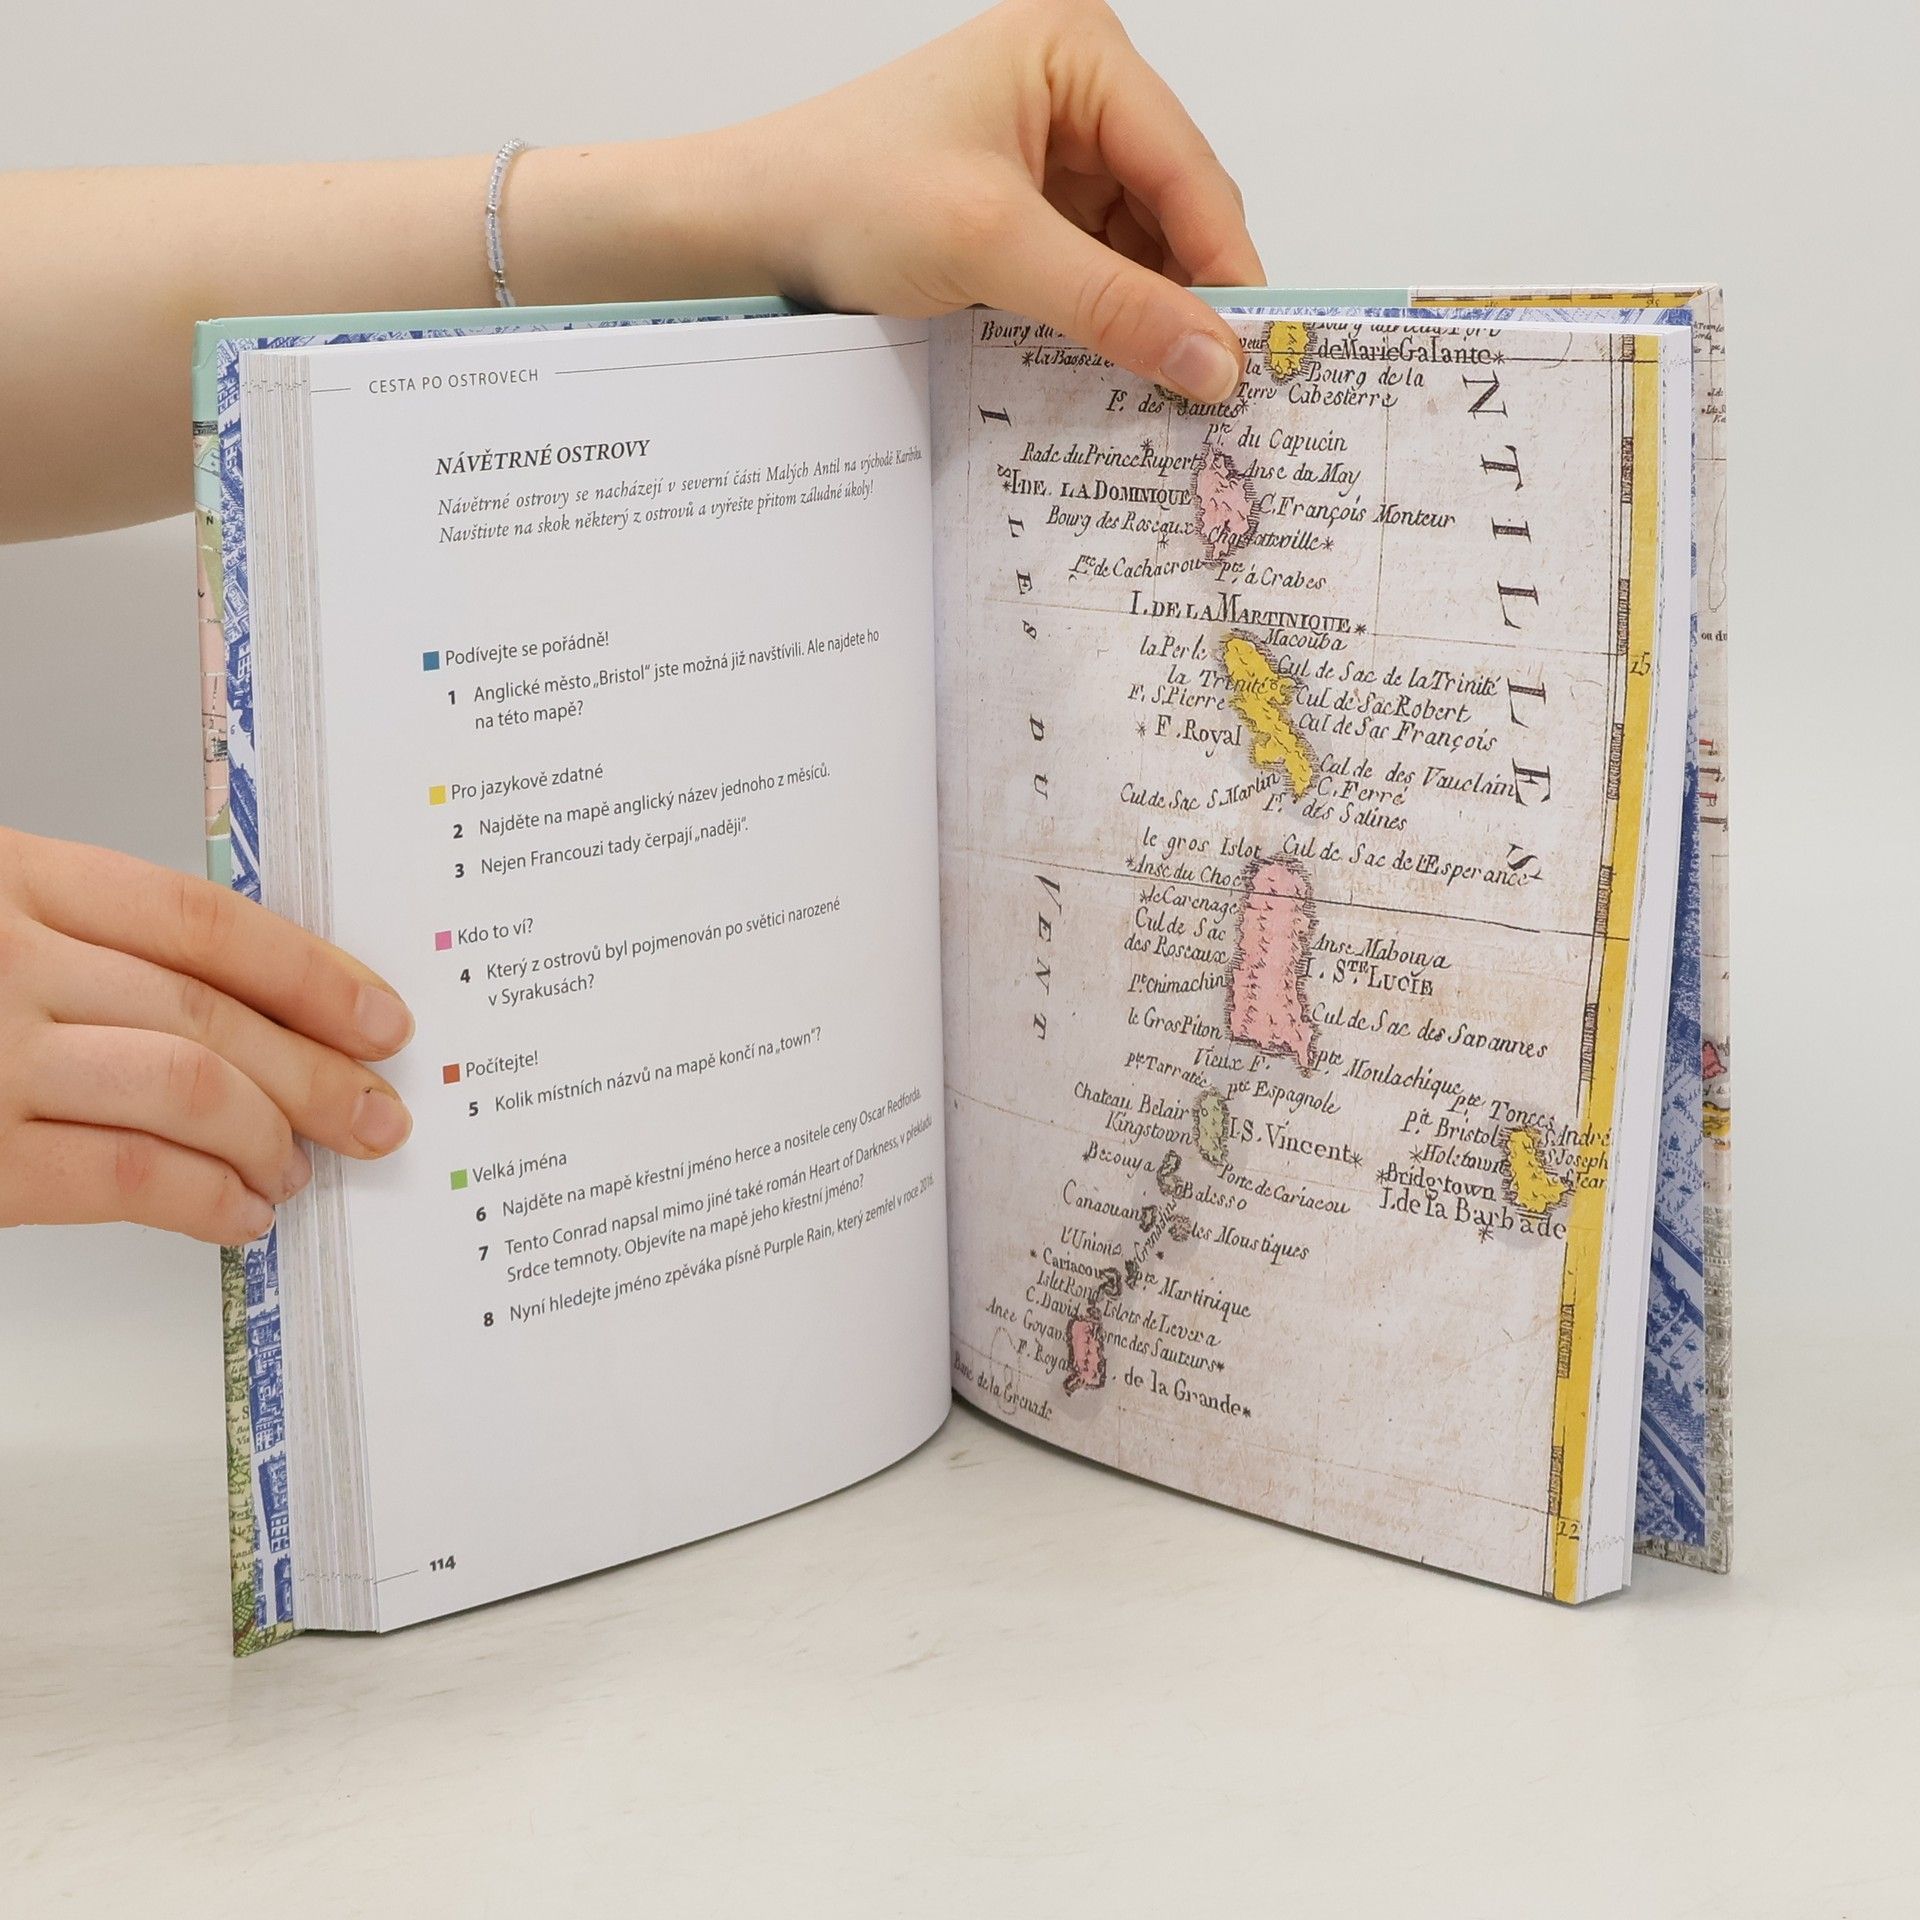 CESTA PO OSTROVECH
NÁVĚTRNÉ OSTROVY
Návětrné ostrovy se nacházejí v severní části Malých Antil na východě Karibiku.
Navštivte na skok některý z ostrovů a vyřešte přitom záludné úkoly!
Podívejte se pořádně!
1 Anglické město „Bristol“ jste možná již navštívili. Ale najdete ho
na této mapě?
Pro jazykově zdatné
2 Najděte na mapě anglický název jednoho z měsíců.
3 Nejen Francouzi tady čerpají „naději“.
Kdo to ví?
4 Který z ostrovů byl pojmenován po světici narozené
v Syrakusách?
Počítejte!
5 Kolik místních názvů na mapě končí na „town“?
Velká jména
6 Najděte na mapě křestní jméno herce a nositele ceny Oscar Redforda.
7 Tento Conrad napsal mimo jiné také román Heart of Darkness, v překladu
Srdce temnoty. Objevíte na mapě jeho křestní jméno?
8 Nyní hledejte jméno zpěváka písně Purple Rain, který zemřel v roce 2016.
114
Bourg du
de Marie Galante
la
Bourg de la
Terre Cabesterre
Is. des Saintes
Pte du Capucin
Rade du Prince Rupert
Anse du May
I DE LA DOMINIQUE
C. François Monteur
Bourg des Roseaux
Charlotteville
Pte de Cachacrou
Pte à Crabes
I. DE LA MARTINIQUE
la Perle
Macouba
Cul de Sac de la Trinité
la Trinité
Cul de Sac Robert
F. S. Pierre
Cul de Sac François
F. Royal
Cul de des Vauclain
C. Ferré
Cul de Sac S. Martin
P. des Salines
le gros Islot
Cul de Sac de l'Esperance
Anse du Choc
le Carenage
Cul de Sac
des Roseaux
Anse Mabouya
I. STE LUCIE
Pte Chimachin
le Gros Piton
Cul de Sac des Savannes
Vieux F.
Pte Moulachique
Pte Espagnole
Chateau Belair
Kingstown
I. S. Vincent
Becouya
Porte de Cariacou
Balesso
Canaouan
les Moustiques
l'Union
Cariacou
Pte Martinique
Islet Rond
C. David
Islots de Levera
Ance Goyave
Morne des Sauteurs
F. Royal
. de la Grande
Banc de la Grenade
Pt Bristol
S. André
Holetown
S. Joseph
Bridgtown
S. Jean
I. de la Barbade
ISLES DU VENT
ANTILLES
15
12